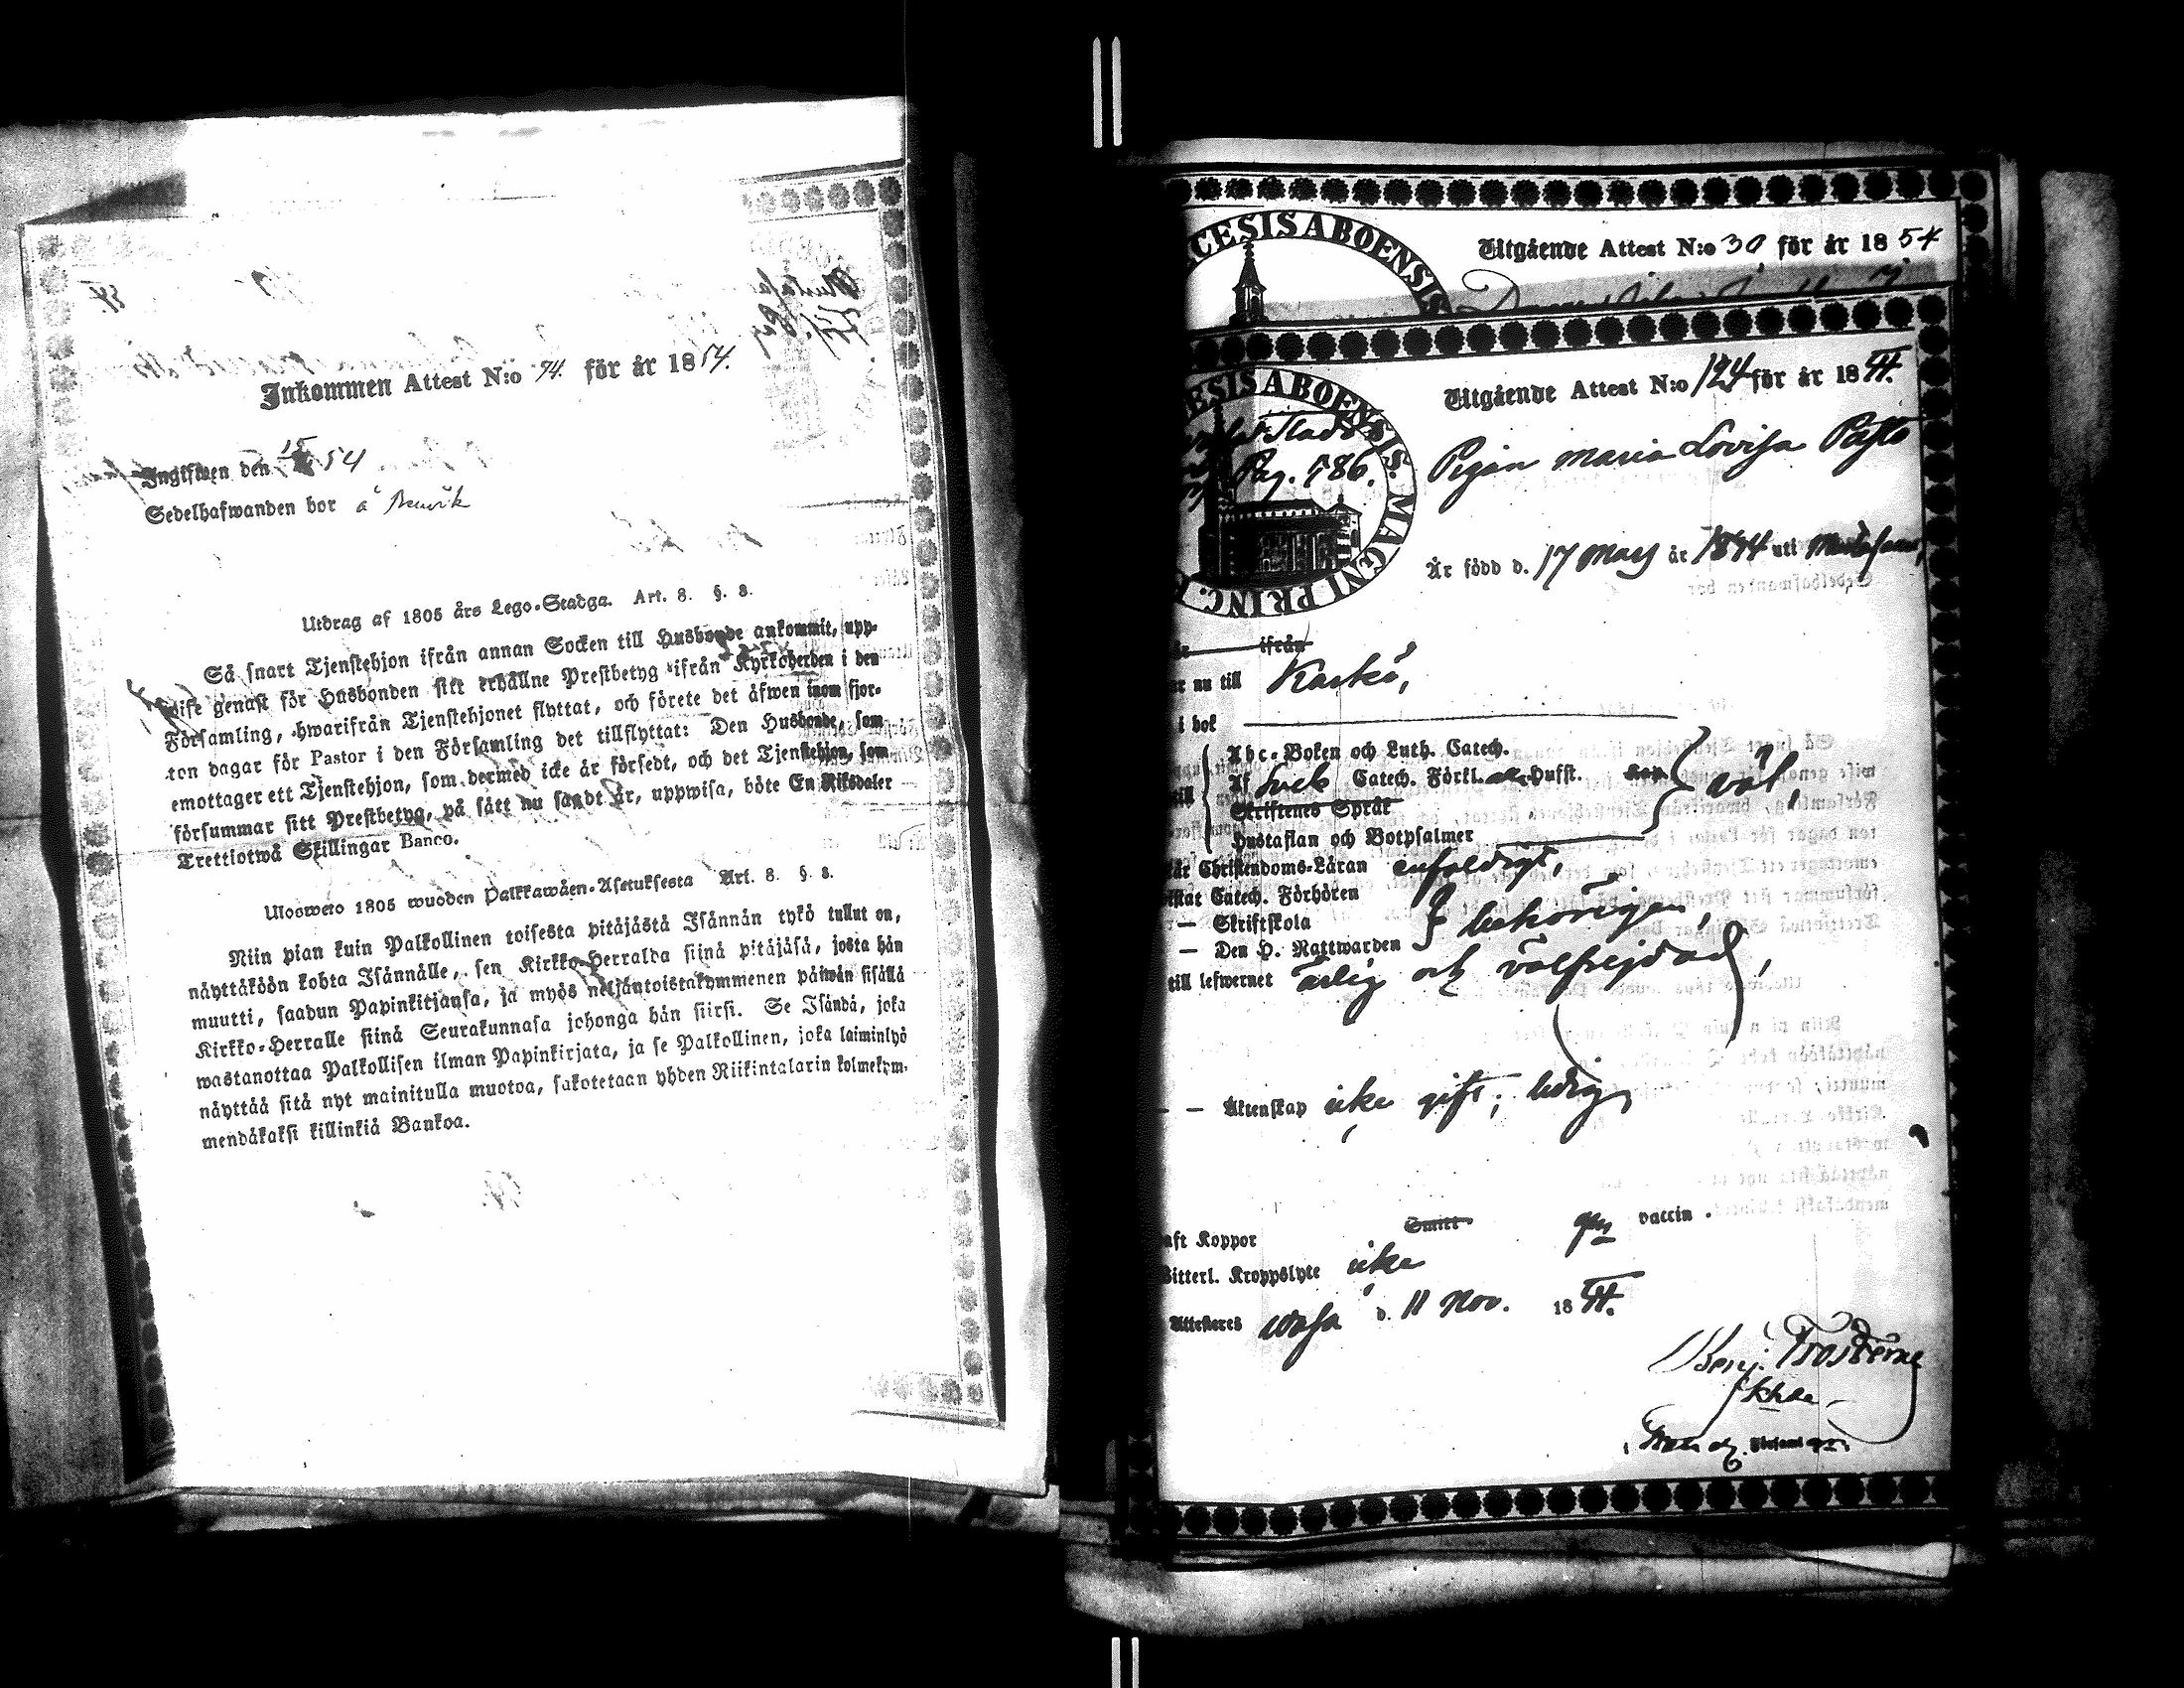 Inkommen Attest N:o 74. för år 1854.
Ingifwen den 54
Sedelhafwanden bor å
Utdrag af 1805 års Lego-Stadga. Art. 8. §. 8.
Så snart Tjenstehjon ifrån annan Socken till Husbonde ankommit, upp-
wise genast för Husbonden sitt erhållne Prestbetyg ifrån Kyrkoherden i den
Församling, hwarifrån Tjenstehjonet flyttat, och förete det åfwen inom fjor-
ton dagar för Pastor i den Församling det tillflyttat: Den Husbonde, som
emottager ett Tjenstehjon, som dermed icke är försedt, och det Tjenstehjon, som
försummar sitt Prestbetyg, på sätt nu sagdt är, uppwisa, böte En Riksdaler
Trettiotwå Skillingar Banco.
Ulosweto 1805 wuoden Palkkawäen-Asetuksesta Art. 8. §. 8.
Niin pian kuin Palkollinen toisesta pitäjästä Isännän tykö tullut on,
näyttäköön kohta Isännälle, sen Kirkko-Herralda siinä pitäjäsä, josta hän
muutti, saadun Papinkirjansa, ja myös neljäntoistakymmenen päiwän sisällä
Kirkko-Herralle siinä Seurakunnasa johonga hän siirsi. Se Isändä, joka
wastanottaa Palkollisen ilman Papinkirjata, ja se Palkollinen, joka laiminlyö
näyttää sitä nyt mainitulla muotoa, sakotetaan yhden Riikintalarin kolmekym-
mendäkaksi killinkiä Bankoa.
CESIS ABOENSIS
Utgående Attest N:o 30 för år 1854
ESIS ABOENSIS. MAGNI PRINC. F
Pag. 586.
Utgående Attest N:o 124 för år 1854.
Pigan Maria Lovisa
Är född d. 17 Mars år 1844 uti
ifrån
nu till Kaskö,
i bok
Abc-Boken och Luth. Catech.
Af Sveb Catech. Förkl. Hufst. Kap.
Skriftenes Språk
Hustaflan och Botpsalmer
väl,
Christendoms-Läran enfaldigt,
Catech. Förhören
— Skriftskola
— Den H. Nattwarden
behörigen,
till lefwernet ärlig och välfrejdad,
— — Äktenskap icke gift; ledig,
aft Koppor Smitt gen vaccin.
Witterl. Kroppslyte icke
Attesteres Wasa d. 11 Nov. 1854.